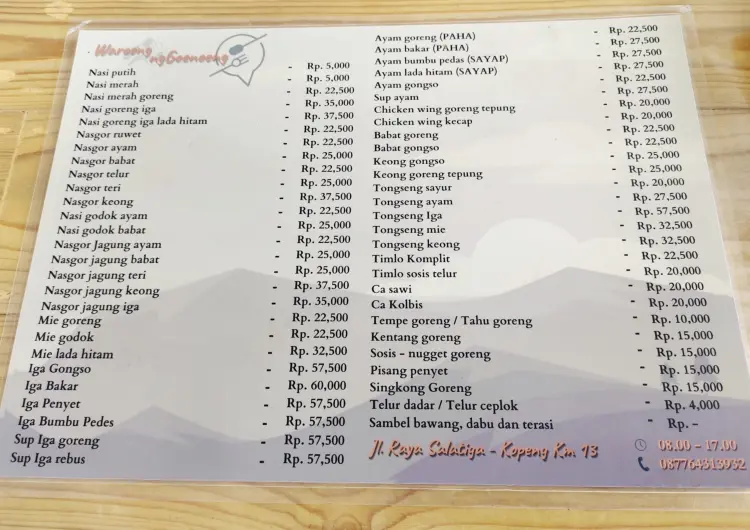 Waroeng
ngGoenoeng
Nasi putih - Rp. 5,000
Nasi merah - Rp. 5,000
Nasi merah goreng - Rp. 22,500
Nasi goreng iga - Rp. 35,000
Nasi goreng iga lada hitam - Rp. 37,500
Nasgor ruwet - Rp. 22,500
Nasgor ayam - Rp. 22,500
Nasgor babat - Rp. 25,000
Nasgor telur - Rp. 22,500
Nasgor teri - Rp. 25,000
Nasgor keong - Rp. 37,500
Nasi godok ayam - Rp. 22,500
Nasi godok babat - Rp. 25,000
Nasgor Jagung ayam - Rp. 22,500
Nasgor jagung babat - Rp. 25,000
Nasgor jagung teri - Rp. 25,000
Nasgor jagung keong - Rp. 37,500
Nasgor jagung iga - Rp. 35,000
Mie goreng - Rp. 22,500
Mie godok - Rp. 22,500
Mie lada hitam - Rp. 32,500
Iga Gongso - Rp. 57,500
Iga Bakar - Rp. 60,000
Iga Penyet - Rp. 57,500
Iga Bumbu Pedes - Rp. 57,500
Sup Iga goreng - Rp. 57,500
Sup Iga rebus - Rp. 57,500
Ayam goreng (PAHA) - Rp. 22,500
Ayam bakar (PAHA) - Rp. 27,500
Ayam bumbu pedas (SAYAP) - Rp. 27,500
Ayam lada hitam (SAYAP) - Rp. 27,500
Ayam gongso - Rp. 22,500
Sup ayam - Rp. 27,500
Chicken wing goreng tepung - Rp. 20,000
Chicken wing kecap - Rp. 20,000
Babat goreng - Rp. 22,500
Babat gongso - Rp. 22,500
Keong gongso - Rp. 25,000
Keong goreng tepung - Rp. 25,000
Tongseng sayur - Rp. 20,000
Tongseng ayam - Rp. 27,500
Tongseng Iga - Rp. 57,500
Tongseng mie - Rp. 32,500
Tongseng keong - Rp. 32,500
Timlo Komplit - Rp. 22,500
Timlo sosis telur - Rp. 20,000
Ca sawi - Rp. 20,000
Ca Kolbis - Rp. 20,000
Tempe goreng / Tahu goreng - Rp. 10,000
Kentang goreng - Rp. 15,000
Sosis - nugget goreng - Rp. 15,000
Pisang penyet - Rp. 15,000
Singkong Goreng - Rp. 15,000
Telur dadar / Telur ceplok - Rp. 4,000
Sambel bawang, dabu dan terasi - Rp. -
Jl. Raya Salatiga - Kopeng Km 13
08.00 - 17.00
087764313932